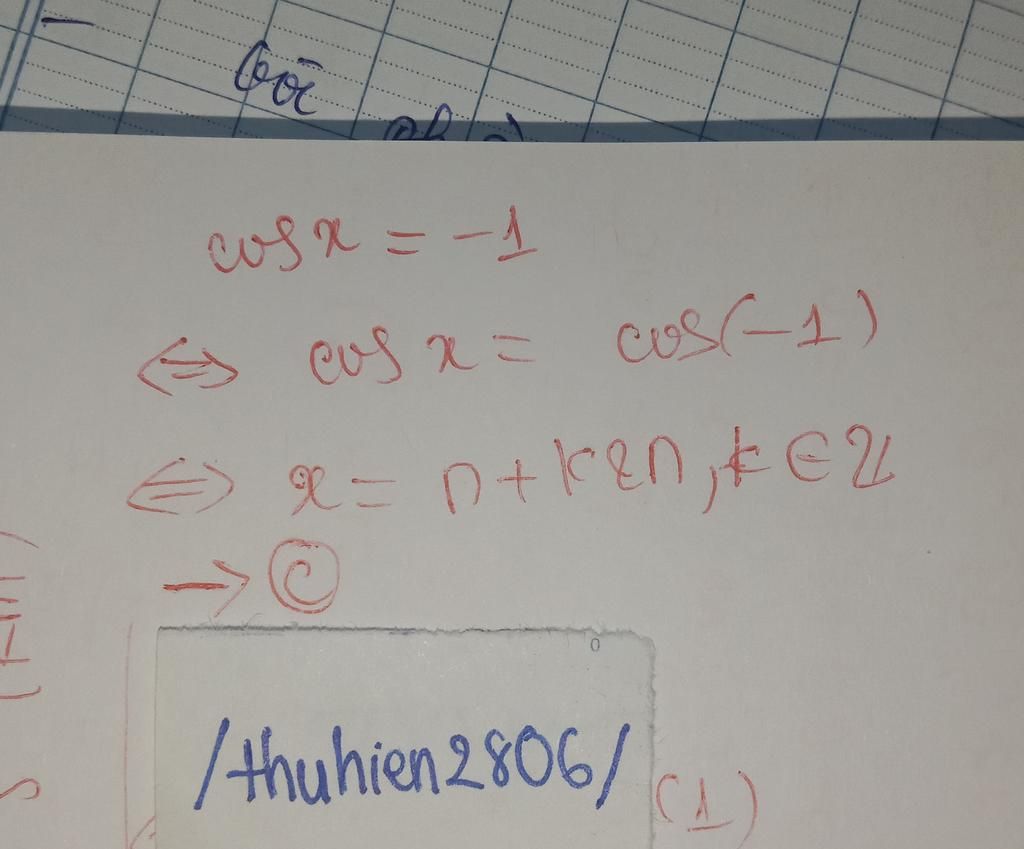 cos x = -1
⇔ cos x = cos(-1)
⇔ x = π + k2π, k ∈ Z
→ C
/thuhien2806/
(1)